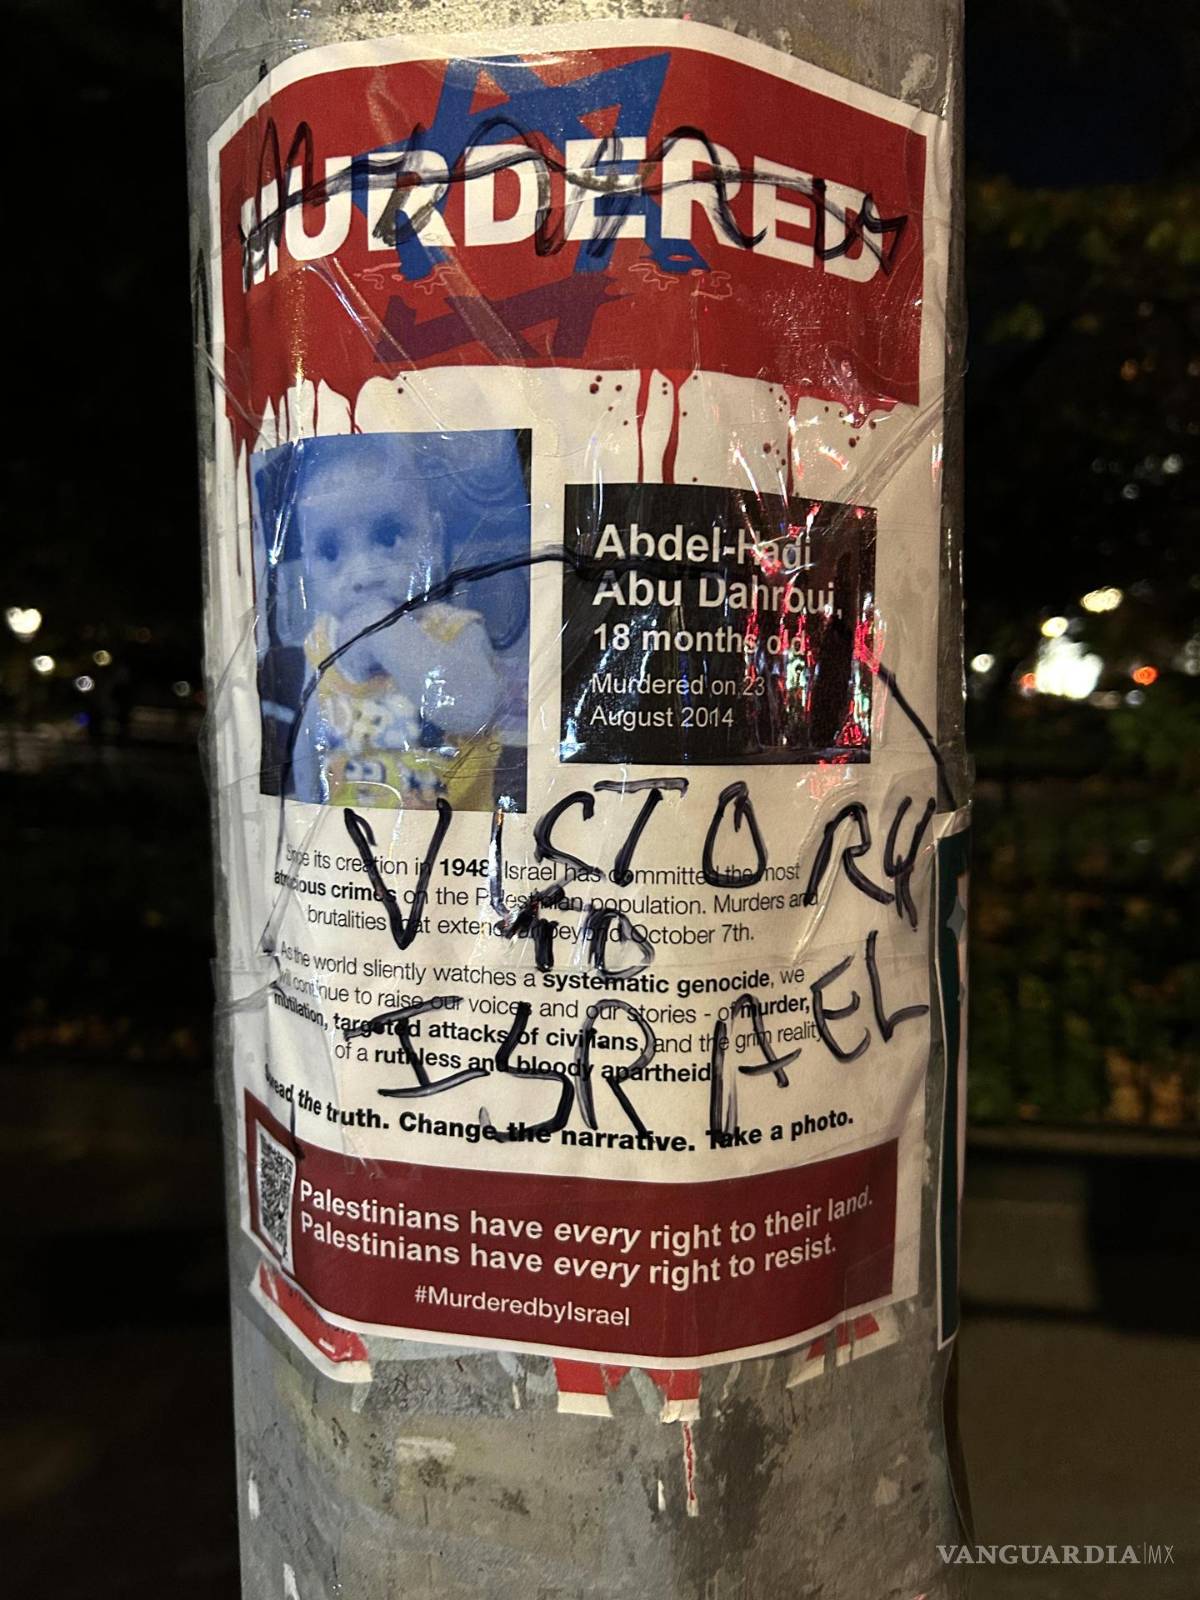 MURDERED
Abdel-Hadi
Abu Dahroui,
18 months old
Murdered on 23
August 2014
VICTORY
TO
ISRAEL
Since its creation in 1948 Israel has committed the most
atrocious crimes on the Palestinian population. Murders and
brutalities that extend far beyond October 7th.
As the world sliently watches a systematic genocide, we
will continue to raise our voices and our stories - of murder,
mutilation, targeted attacks of civilians, and the grim reality
of a ruthless and bloody apartheid
Spread the truth. Change the narrative. Take a photo.
Palestinians have every right to their land.
Palestinians have every right to resist.
#MurderedbyIsrael
VANGUARDIA|MX